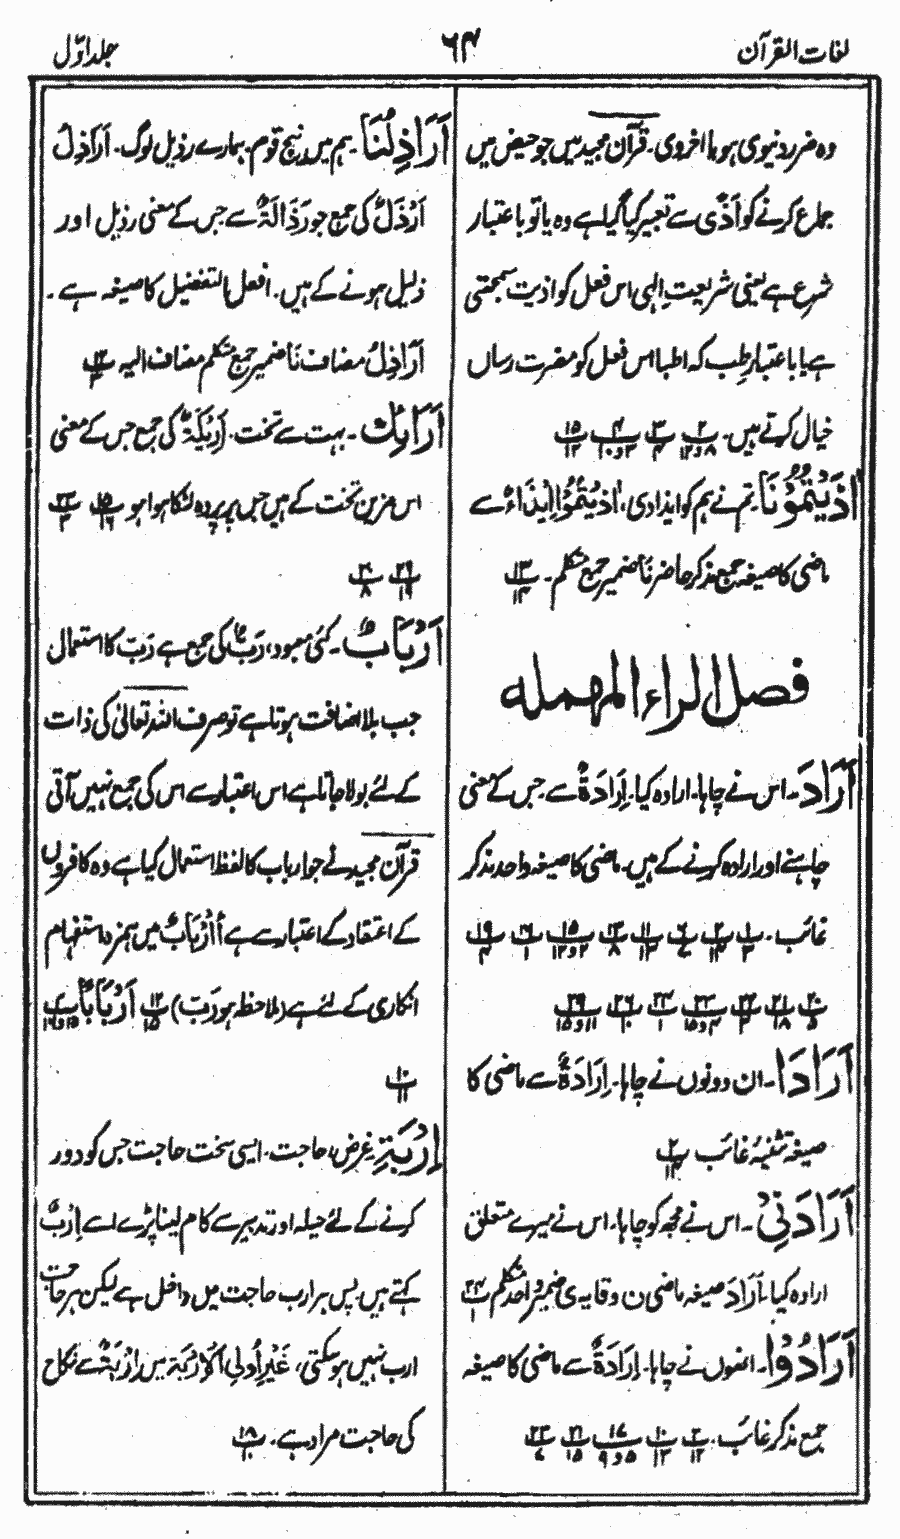 لغات القرآن
۶۴
جلد اوّل
وہ ضرر دنیوی ہو یا اخروی۔ قرآن مجید میں جو حیض میں
جماع کرنے کو اَذًی سے تعبیر کیا گیا ہے وہ یا تو باعتبار
شرع ہے یعنی شریعتِ الٰہی اس فعل کو اذیت سمجھتی
ہے یا باعتبار طب کہ اطبا اس فعل کو مضرت رساں
خیال کرتے ہیں۔
اٰذَیْتُمُوْنَا۔ تم نے ہم کو ایذا دی، اٰذَیْتُمُوْا اِیْذَاءٌ سے
ماضی کا صیغہ جمع مذکر حاضر نَا ضمیر جمع متکلم۔
فصل الراء المهمله
اَرَادَ۔ اس نے چاہا۔ ارادہ کیا۔ اِرَادَةٌ سے۔ جس کے معنی
چاہنے اور ارادہ کرنے کے ہیں۔ ماضی کا صیغہ واحد مذکر
غائب۔
اَرَادَا۔ ان دونوں نے چاہا۔ اِرَادَةٌ سے ماضی کا
صیغہ تثنیہ غائب
اَرَادَنِیْ۔ اس نے مجھ کو چاہا۔ اس نے میرے متعلق
ارادہ کیا۔ اَرَادَ صیغہ ماضی ن وقایہ ی ضمیر واحد متکلم
اَرَادُوْا۔ انھوں نے چاہا۔ اِرَادَةٌ سے ماضی کا صیغہ
جمع مذکر غائب۔
اَرَاذِلُنَا۔ ہم میں رنیچ قوم۔ ہمارے رذیل لوگ۔ اَرَاذِلُ
اَرْذَلُ کی جمع جو رَذَالَةٌ سے جس کے معنی رذیل اور
ذلیل ہونے کے ہیں۔ افعل التفضیل کا صیغہ ہے۔
اَرَاذِلُ مضاف نَا ضمیر جمع متکلم مضاف الیہ
اَرَآئِكِ۔ بہت سے تخت۔ اَرِیْکَةٌ کی جمع جس کے معنی
اس مزین تخت کے ہیں جس پر پردہ لٹکا ہوا ہو
اَرْبَابٌ۔ کئی معبود، رَبّ کی جمع ہے رَبّ کا استعمال
جب بلا اضافت ہوتا ہے تو صرف اللہ تعالیٰ کی ذات
کے لئے بولا جاتا ہے اس اعتبار سے اس کی جمع نہیں آتی
قرآن مجید نے جو ارباب کا لفظ استعمال کیا ہے وہ کافروں
کے اعتقاد کے اعتبار سے ہے أَاَرْبَابٌ میں ہمزہ استفہام
انکاری کے لئے ہے (ملاحظہ ہو رَبّ) اَرْبَابًا
اِرْبَةِ۔ غرض، حاجت۔ ایسی سخت حاجت جس کو دور
کرنے کے لئے حیلہ اور تدبیر سے کام لینا پڑے اسے اِرْبٌ
کہتے ہیں۔ پس ہر ارب حاجت میں داخل ہے لیکن ہر حاجت
ارب نہیں ہو سکتی، غَیْرِ اُولِی الْاِرْبَةِ میں اِرْبَةٌ سے نکاح
کی حاجت مراد ہے۔